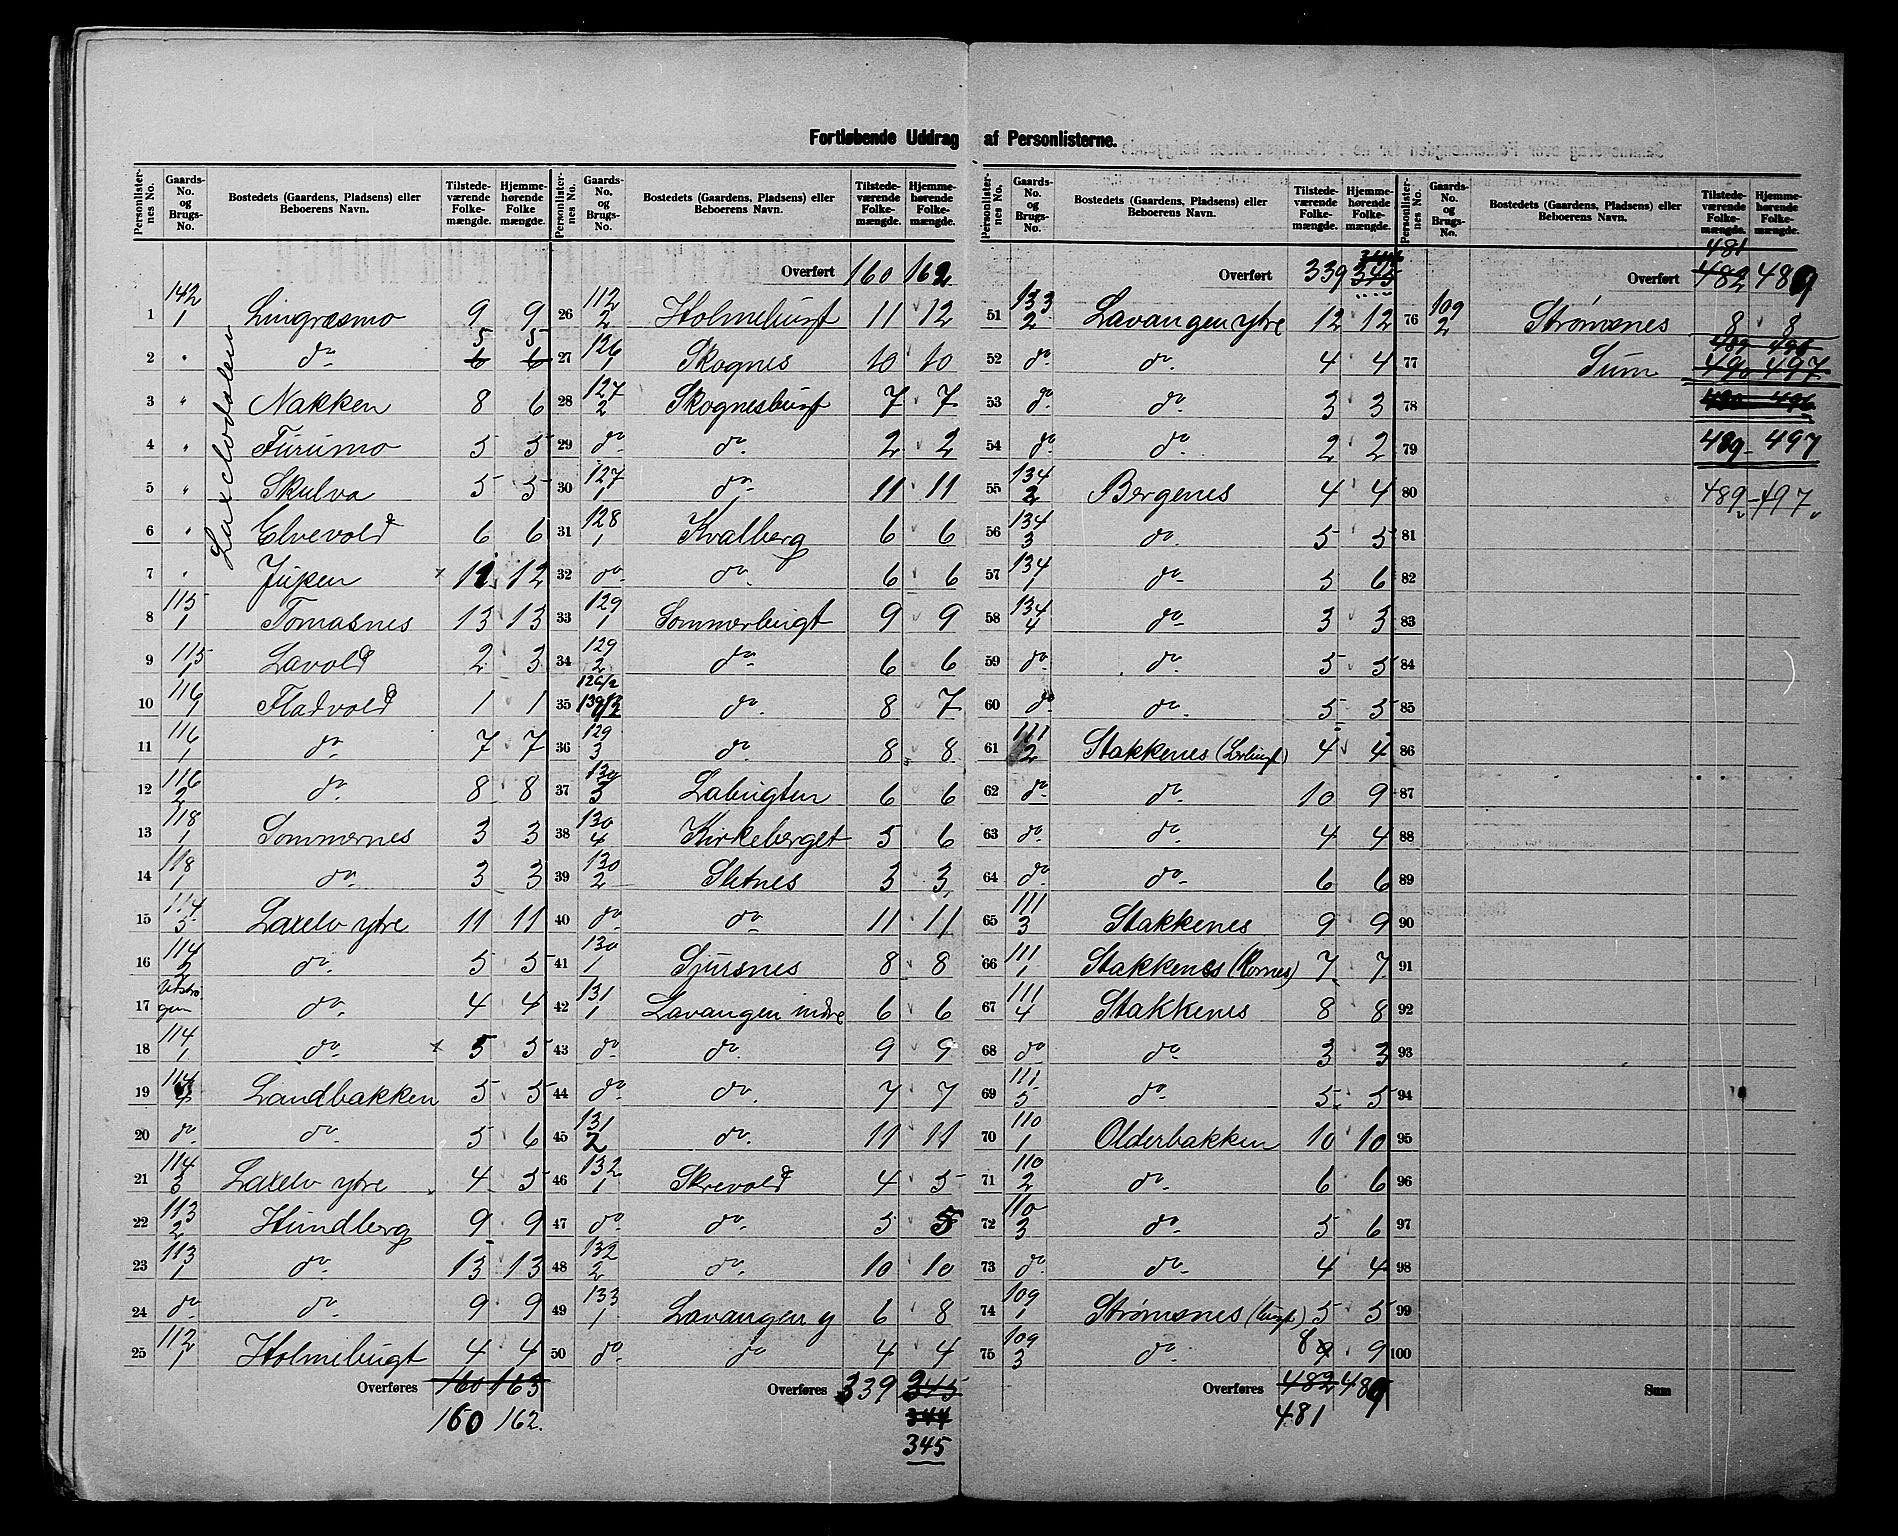 Fortløbende Uddrag af Personlisterne.
Personlister-nes No. Gaards-No. og Brugs-No. Bostedets (Gaardens, Pladsens) eller Beboerens Navn. Tilstede-værende Folke-mængde. Hjemme-hørende Folke-mængde.
Laxelvdalen
1 142/1 Lingræsmo 9 9
2 " do 6 5 6 5
3 " Nakken 8 6
4 " Furumo 5 5
5 " Skulva 5 5
6 " Elvevold 6 6
7 " Jupen × 11 12
8 115/1 Tomasnes 13 13
9 115/1 Lavold 2 3
10 116/1 Fladvold 1 1
11 116/1 do 7 7
12 116/2 do. 8 8
13 118/1 Sommernes 3 3
14 118/1 do. 3 3
15 114/5 Laxelv ytre 11 11
16 114/2 do. 5 5
17 do. 4 4
18 114/1 do. × 5 5
19 114/4 Landbakken 5 5
20 do. do. 5 6
21 114/3 Laxelv ytre 4 5
22 113/2 Hundberg 9 9
23 113/1 do. 13 13
24 do do. 9 9
25 112/1 Holmebugt 4 4
Overføres 160 163
160 162.
Personlister-nes No. Gaards-No. og Brugs-No. Bostedets (Gaardens, Pladsens) eller Beboerens Navn. Tilstede-værende Folke-mængde. Hjemme-hørende Folke-mængde.
Overført 160 162
26 112/2 Holmebugt 11 12
27 126/1 Skognes 10 10
28 127/2 Skognesbugt 7 7
29 do do. 2 2
30 127/1 do. 11 11
31 128/1 Kvalberg 6 6
32 do. do. 6 6
33 129/1 Sommerbugt 9 9
34 129/2 do. 6 6
35 126/2 do. 8 7
36 129/3 do. 8 8
37 130/3 Labugten 6 6
38 130/4 Kirkeberget 5 6
39 130/2 Sletnes 3 3
40 do. do. 11 11
41 130/1 Sjursnes 8 8
42 131/1 Lavangen indre 6 6
43 do. do. 9 9
44 do. do. 7 7
45 131/2 do. 11 11
46 132/1 Skrevold 4 5
47 do. do. 5 5
48 132/2 do. 10 10
49 133/1 Lavangen y 6 8
50 do. do 4 4
Overføres 339 345
344
345
Personlister-nes No. Gaards-No. og Brugs-No. Bostedets (Gaardens, Pladsens) eller Beboerens Navn. Tilstede-værende Folke-mængde. Hjemme-hørende Folke-mængde.
344
Overført 339 345
51 133/2 Lavangen ytre 12 12
52 do. do. 4 4
53 do. do. 3 3
54 do do. 2 2
55 134/2 Bergenes 4 4
56 134/3 do. 5 5
57 134/1 do. 5 6
58 134/4 do. 3 3
59 do. do. 5 5
60 do do. 5 5
61 111/2 Stakkenes 4 4
62 do. do. 10 9
63 do. do. 4 4
64 do. do. 6 6
65 111/3 Stakkenes 9 9
66 111/1 Stakkenes 7 7
67 111/4 Stakkenes 8 8
68 do do. 3 3
69 111/5 do. 5 5
70 110/1 Olderbakken 10 10
71 110/2 do. 6 6
72 110/3 do. 5 6
73 do. do. 4 4
74 109/1 Strømsnes (bugt) 5 5
75 109/3 do. 8 9 9
Overføres 482 489
481
Personlister-nes No. Gaards-No. og Brugs-No. Bostedets (Gaardens, Pladsens) eller Beboerens Navn. Tilstede-værende Folke-mængde. Hjemme-hørende Folke-mængde.
481
Overført 482 489
76 109/2 Strømsnes 8 8
489 496
77 Sum 490 497
78 496
79 489 - 497
80 489 - 497
81
82
83
84
85
86
87
88
89
90
91
92
93
94
95
96
97
98
99
100
Sum